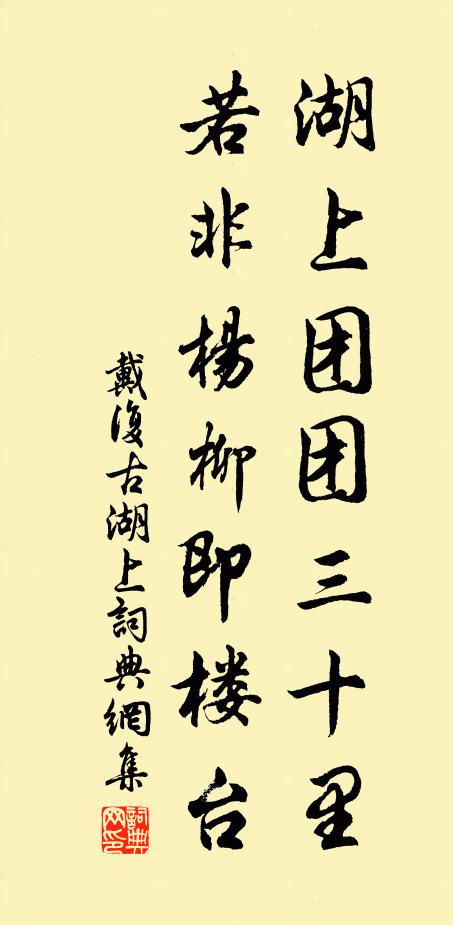 湖上团团三十里
若非楊柳即楼台
戴復古湖上詞典網集
詞典网印